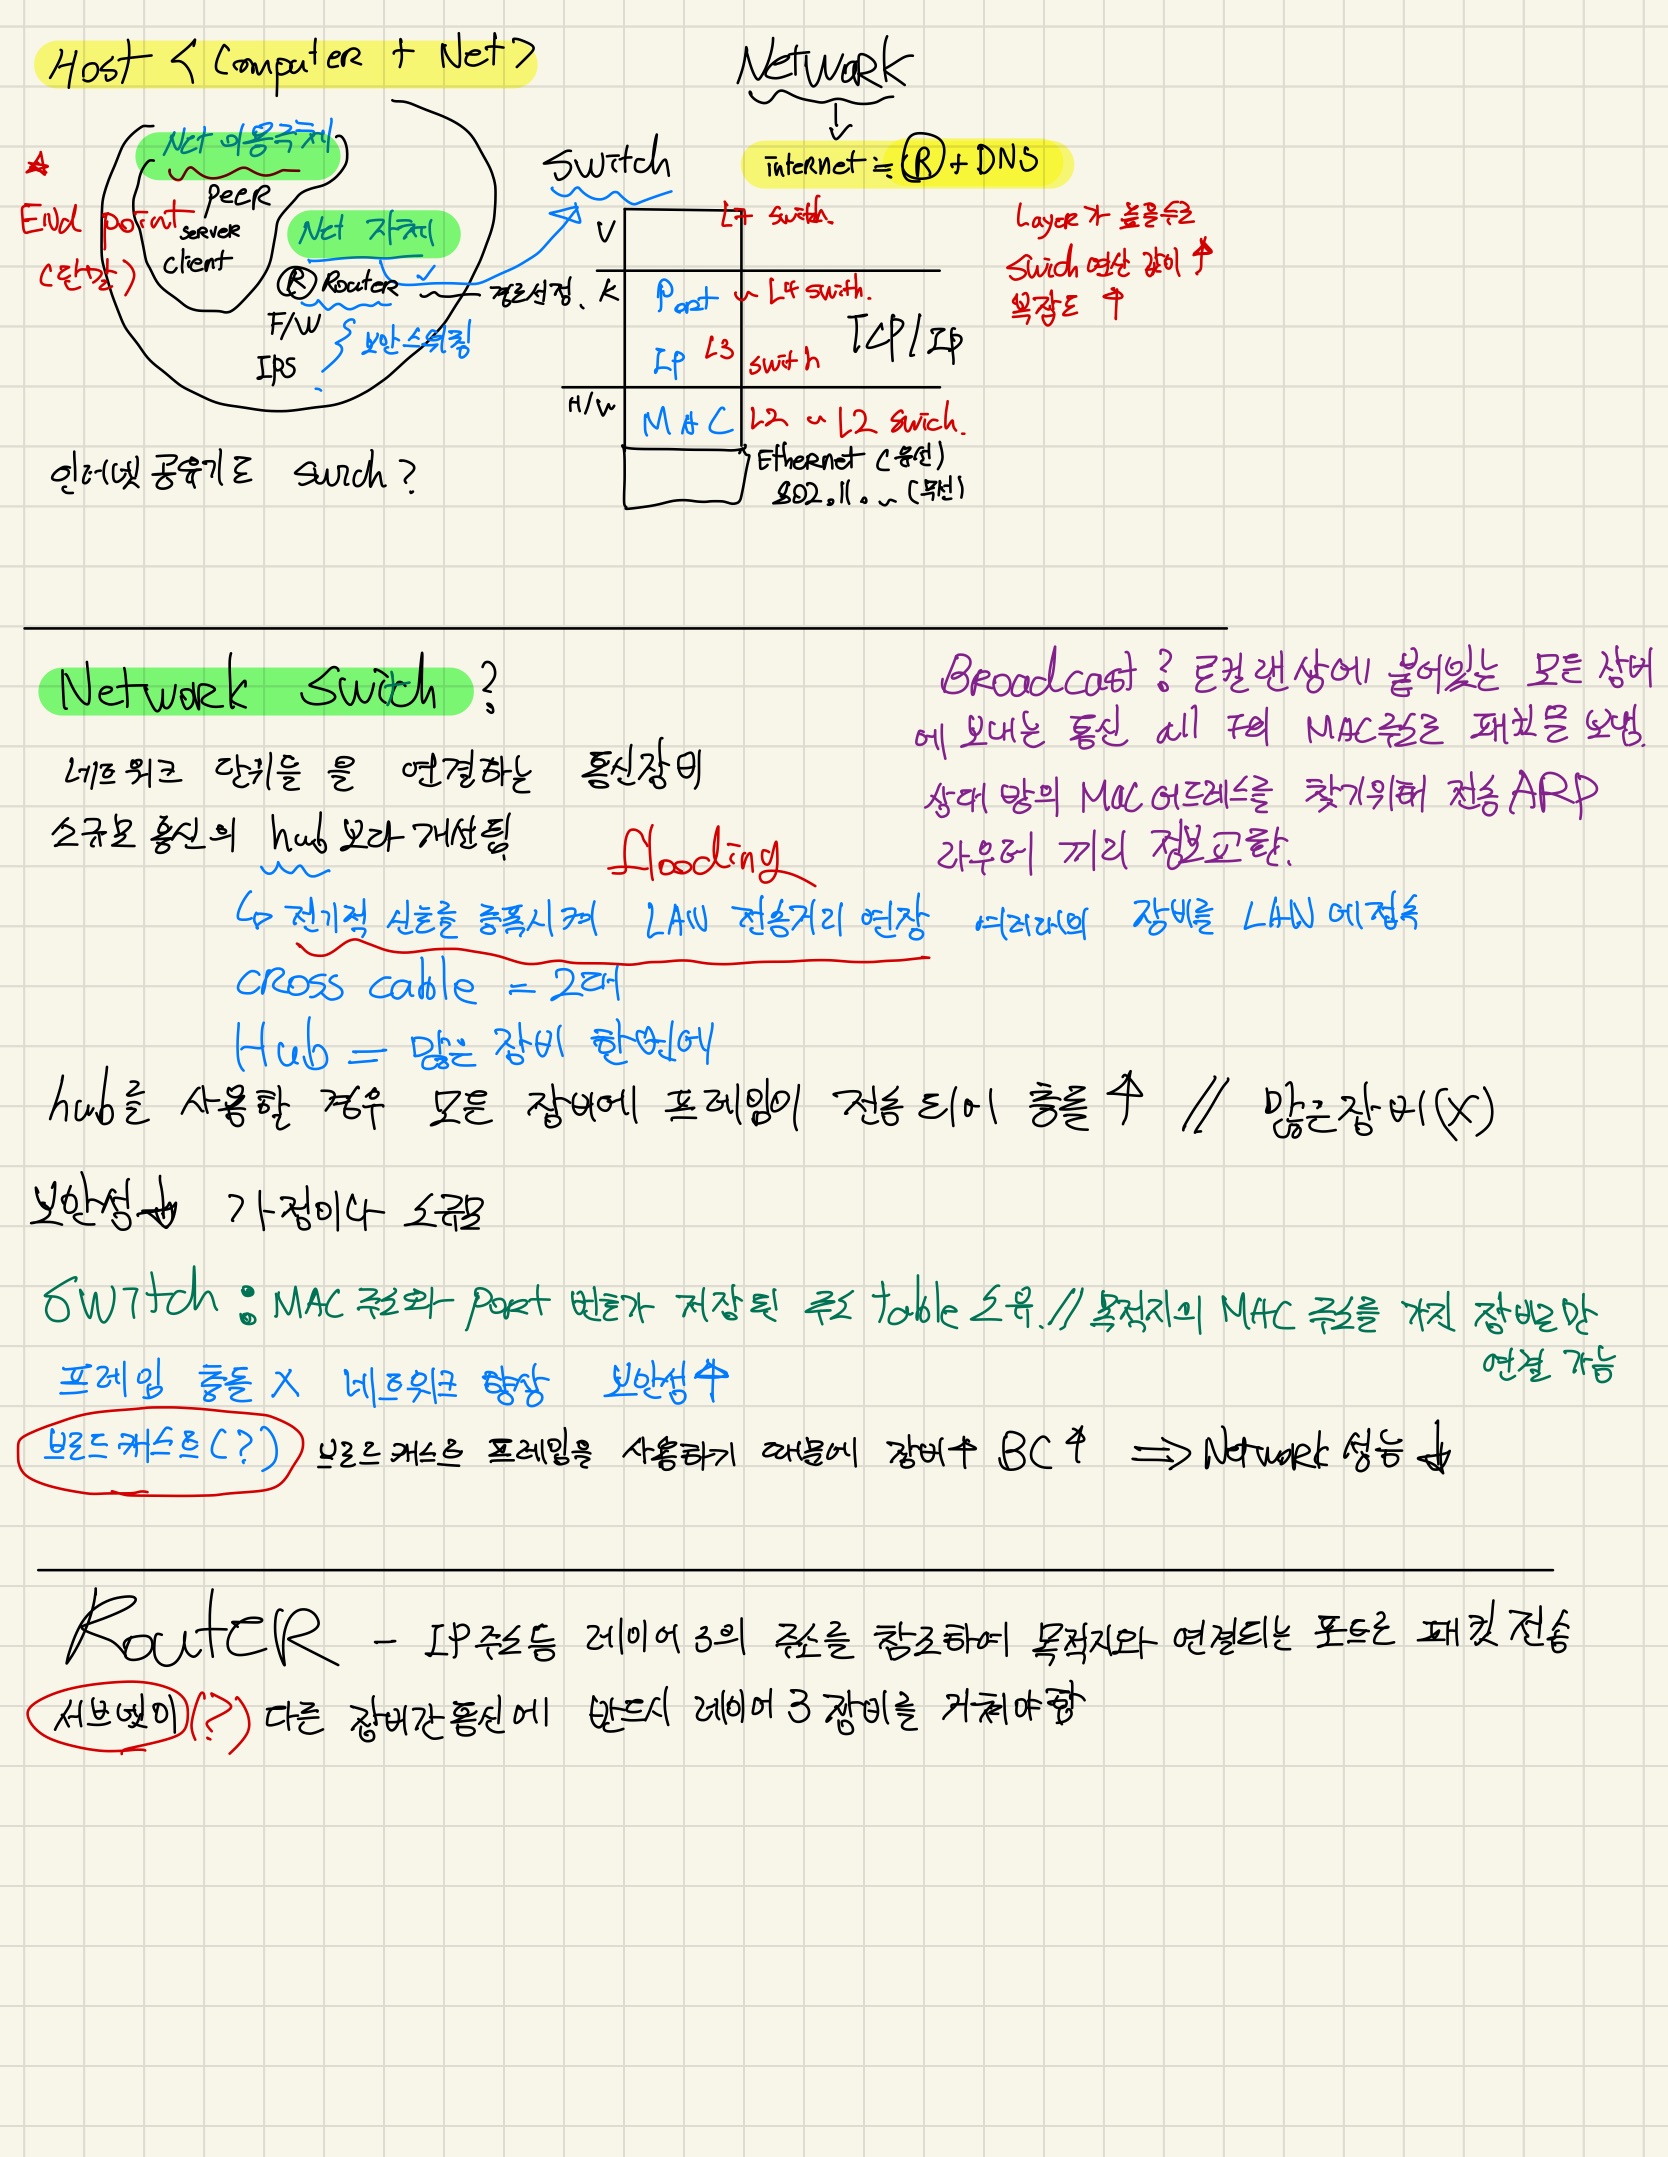 Host < Computer + Net >
Network
Net 이용주체
Switch
internet ≒ Ⓡ + DNS
End point
(단말)
Peer
server
client
Net 자체
Ⓡ Router 경로선정.
F/W
IPS
보안스위칭
U
L7 switch.
K
Port ~ L4 swith.
IP L3 swith
TCP/IP
H/W
MAC L2 ~ L2 swich.
Ethernet (유선)
802.11. ~ (무선)
Layer가 높을수록
Swich 연산 값이 ↑
복잡도 ↑
인터넷 공유기도 swich?
Network Switch?
네트워크 단위들 을 연결하는 통신장비
소규모 통신의 hub보다 개선됨.
flooding
↳ 전기적 신호를 증폭시켜 LAN 전송거리 연장 여러대의 장비를 LAN에 접속
cross cable = 2대
Hub = 많은 장비 한번에
Broadcast? 로컬 랜상에 붙어있는 모든 장비
에 보내는 통신 all F의 MAC주소로 패킷을 보냄.
상대방의 Mac 어드레스를 찾기위해 전송 ARP
라우터 끼리 정보교환.
hub를 사용할 경우 모든 장비에 프레임이 전송 되어 충돌 ↑ // 많은장비(X)
보안성↓ 가정이나 소규모
Switch : MAC 주소와 port 번호가 저장된 주소 table 소유. // 목적지의 MAC 주소를 가진 장비로만
연결 가능
프레임 충돌 X 네트워크 향상 보안성↑
브로드캐스트(?) 브로드캐스트 프레임을 사용하기 때문에 장비↑ BC↑ ⇒ Network 성능 ↓
Router - IP주소등 레이어3의 주소를 참조하여 목적지와 연결되는 포트로 패킷 전송
서브넷이(?) 다른 장비간통신에 반드시 레이어 3 장비를 거쳐야 함